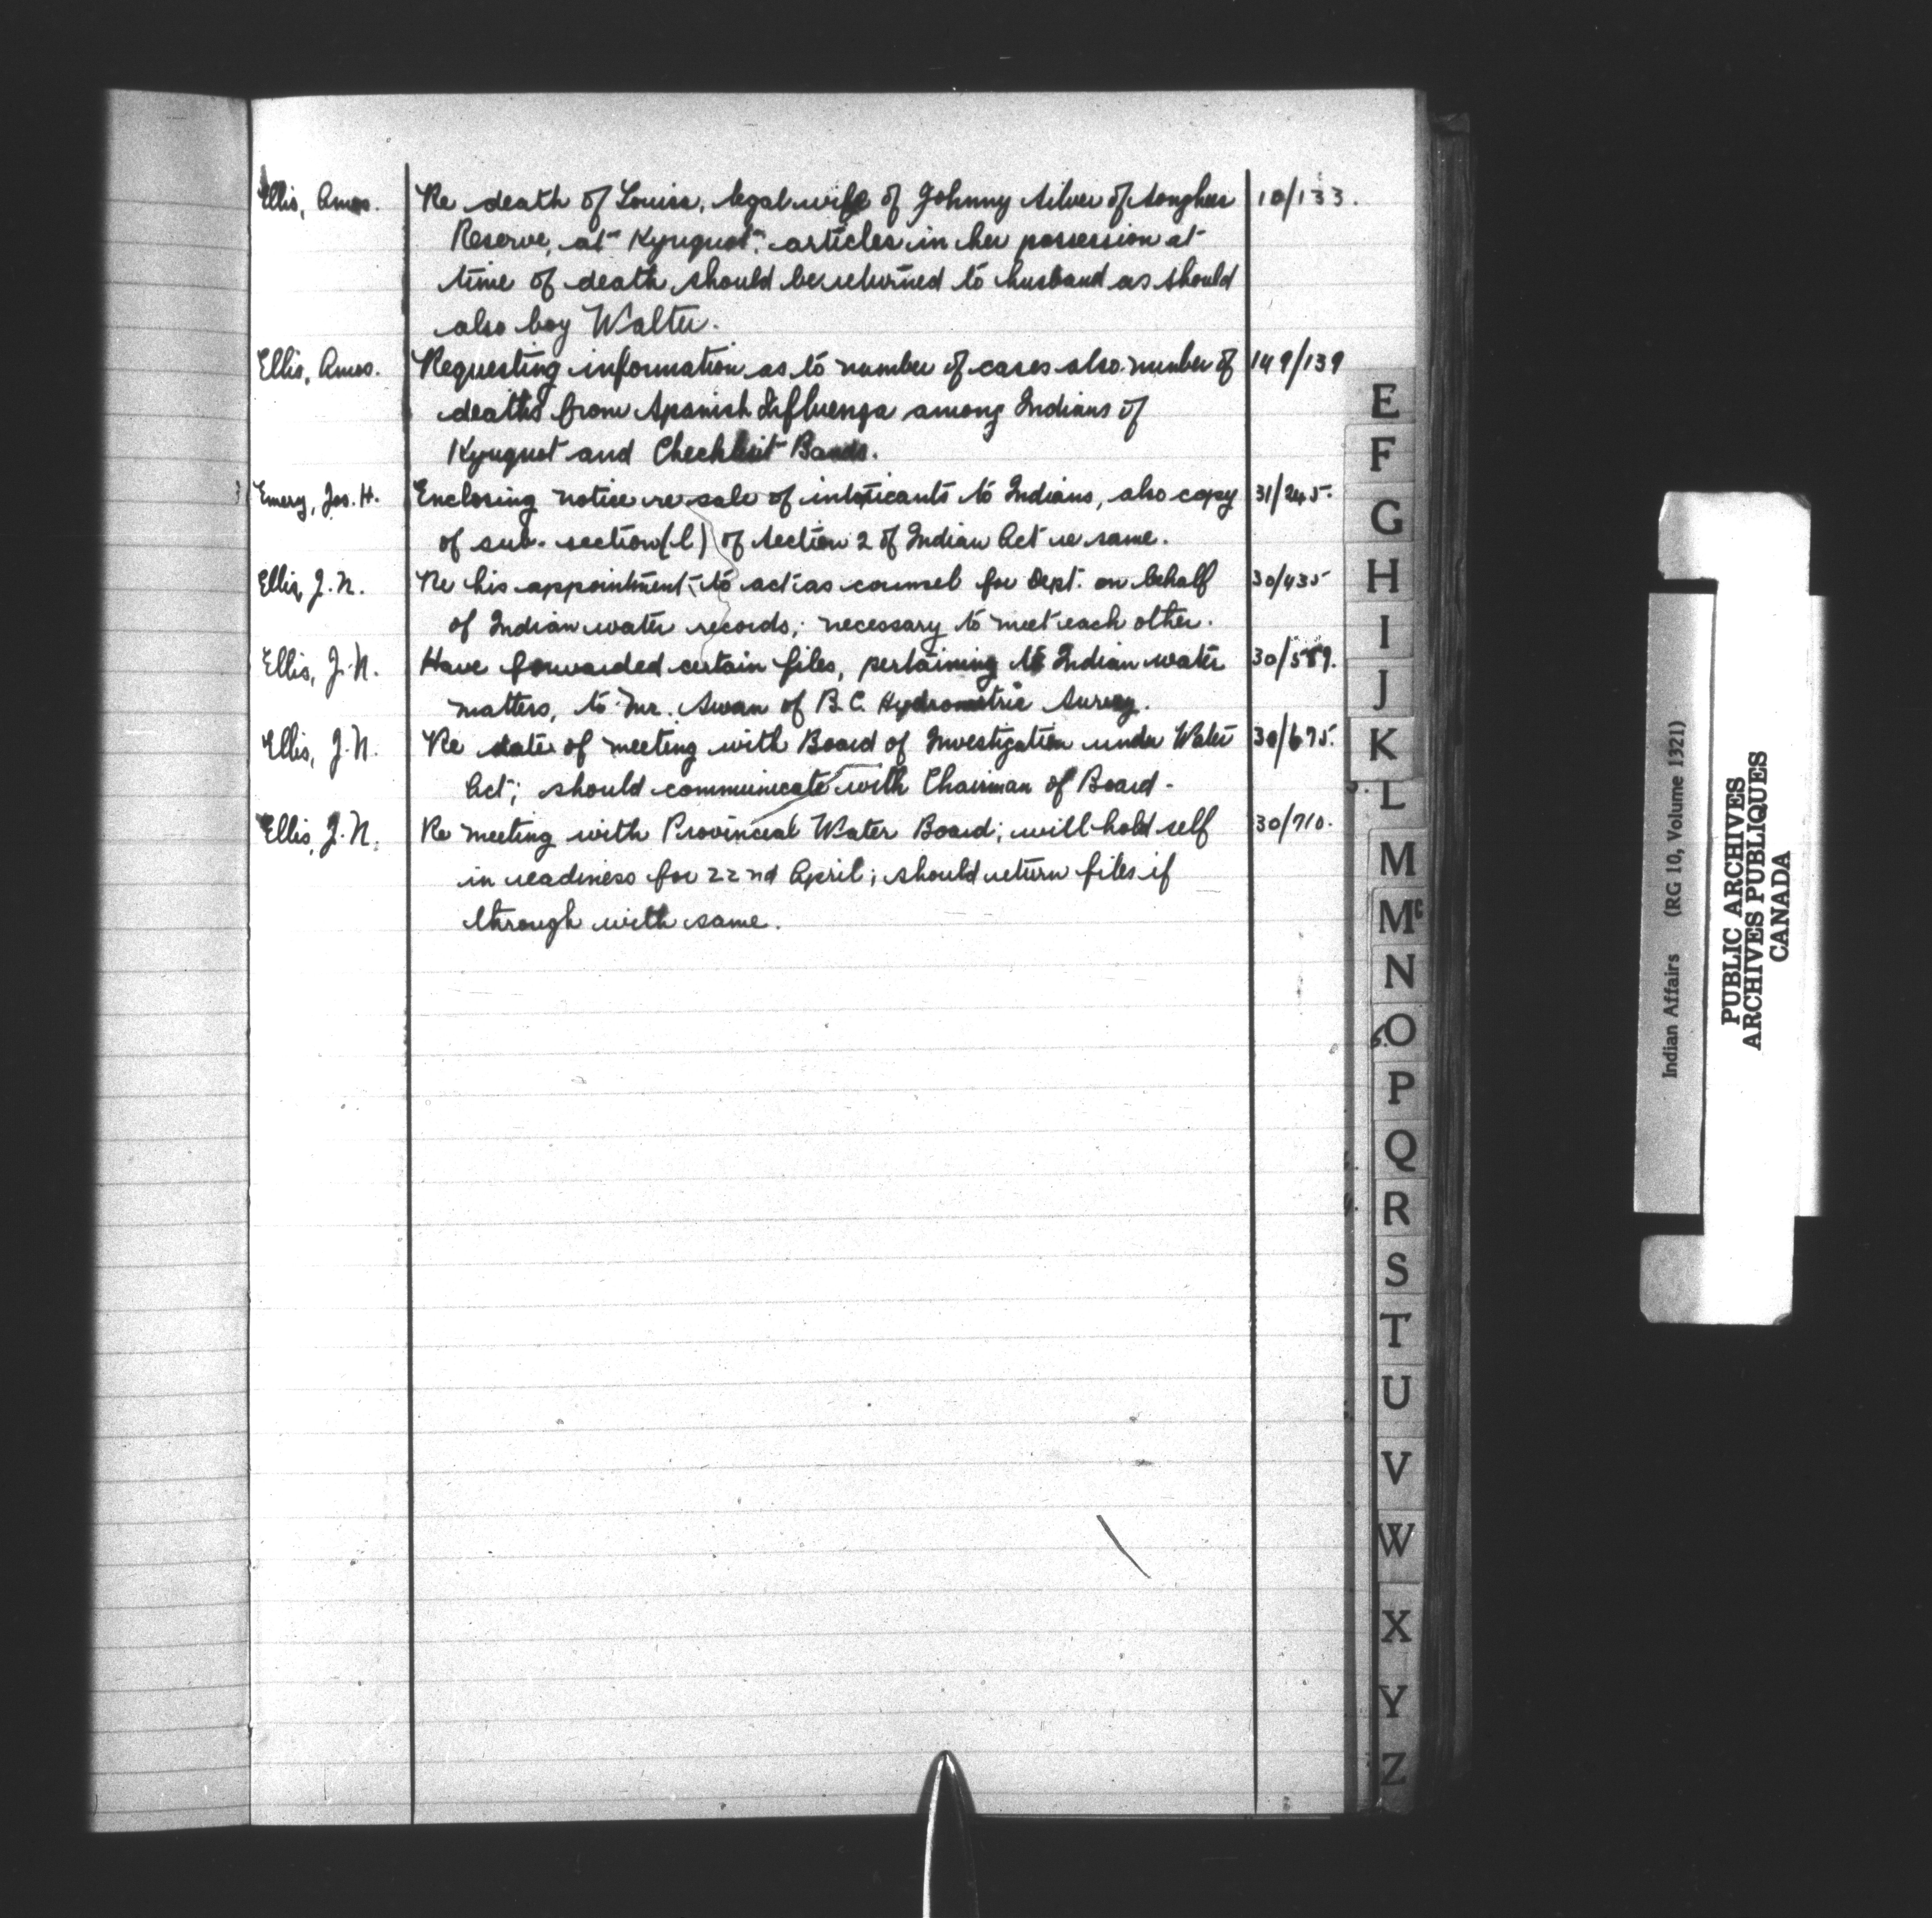 Ellis, Amos. Re death of Louisa, legal wife of Johnny Silver of Songhees 10/133.
Reserve, at Kyuquot: articles in her possession at
time of death should be returned to husband as should
also boy Walter.
Ellis, Amos. Requesting information as to number of cases also number of 149/139
deaths from Spanish Influenza among Indians of
Kyuquot and Checkleset Bands.
Emery, Jos. H. Enclosing notice re sale of intoxicants to Indians, also copy 31/245.
of sub-section (l) of Section 2 of Indian Act re same.
Ellis, J. N. Re his appointment to act as counsel for Dept. on behalf 30/435
of Indian water records; necessary to meet each other.
Ellis, J. N. Have forwarded certain files, pertaining to Indian water 30/589.
matters, to Mr. Swan of B.C. Hydrometric Survey.
Ellis, J. N. Re date of meeting with Board of Investigation under Water 30/675.
Act; should communicate with Chairman of Board.
Ellis, J. N. Re meeting with Provincial Water Board; will hold self 30/710.
in readiness for 22nd April; should return files if
through with same.
E
F
G
H
I
J
K
L
M
Mc
N
O
P
Q
R
S
T
U
V
W
X
Y
Z
Indian Affairs (RG 10, Volume 1321)
PUBLIC ARCHIVES
ARCHIVES PUBLIQUES
CANADA